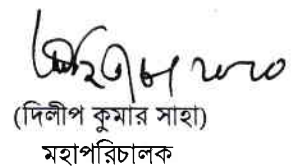 (দিলীপ কুমার সাহা)
মহাপরিচালক